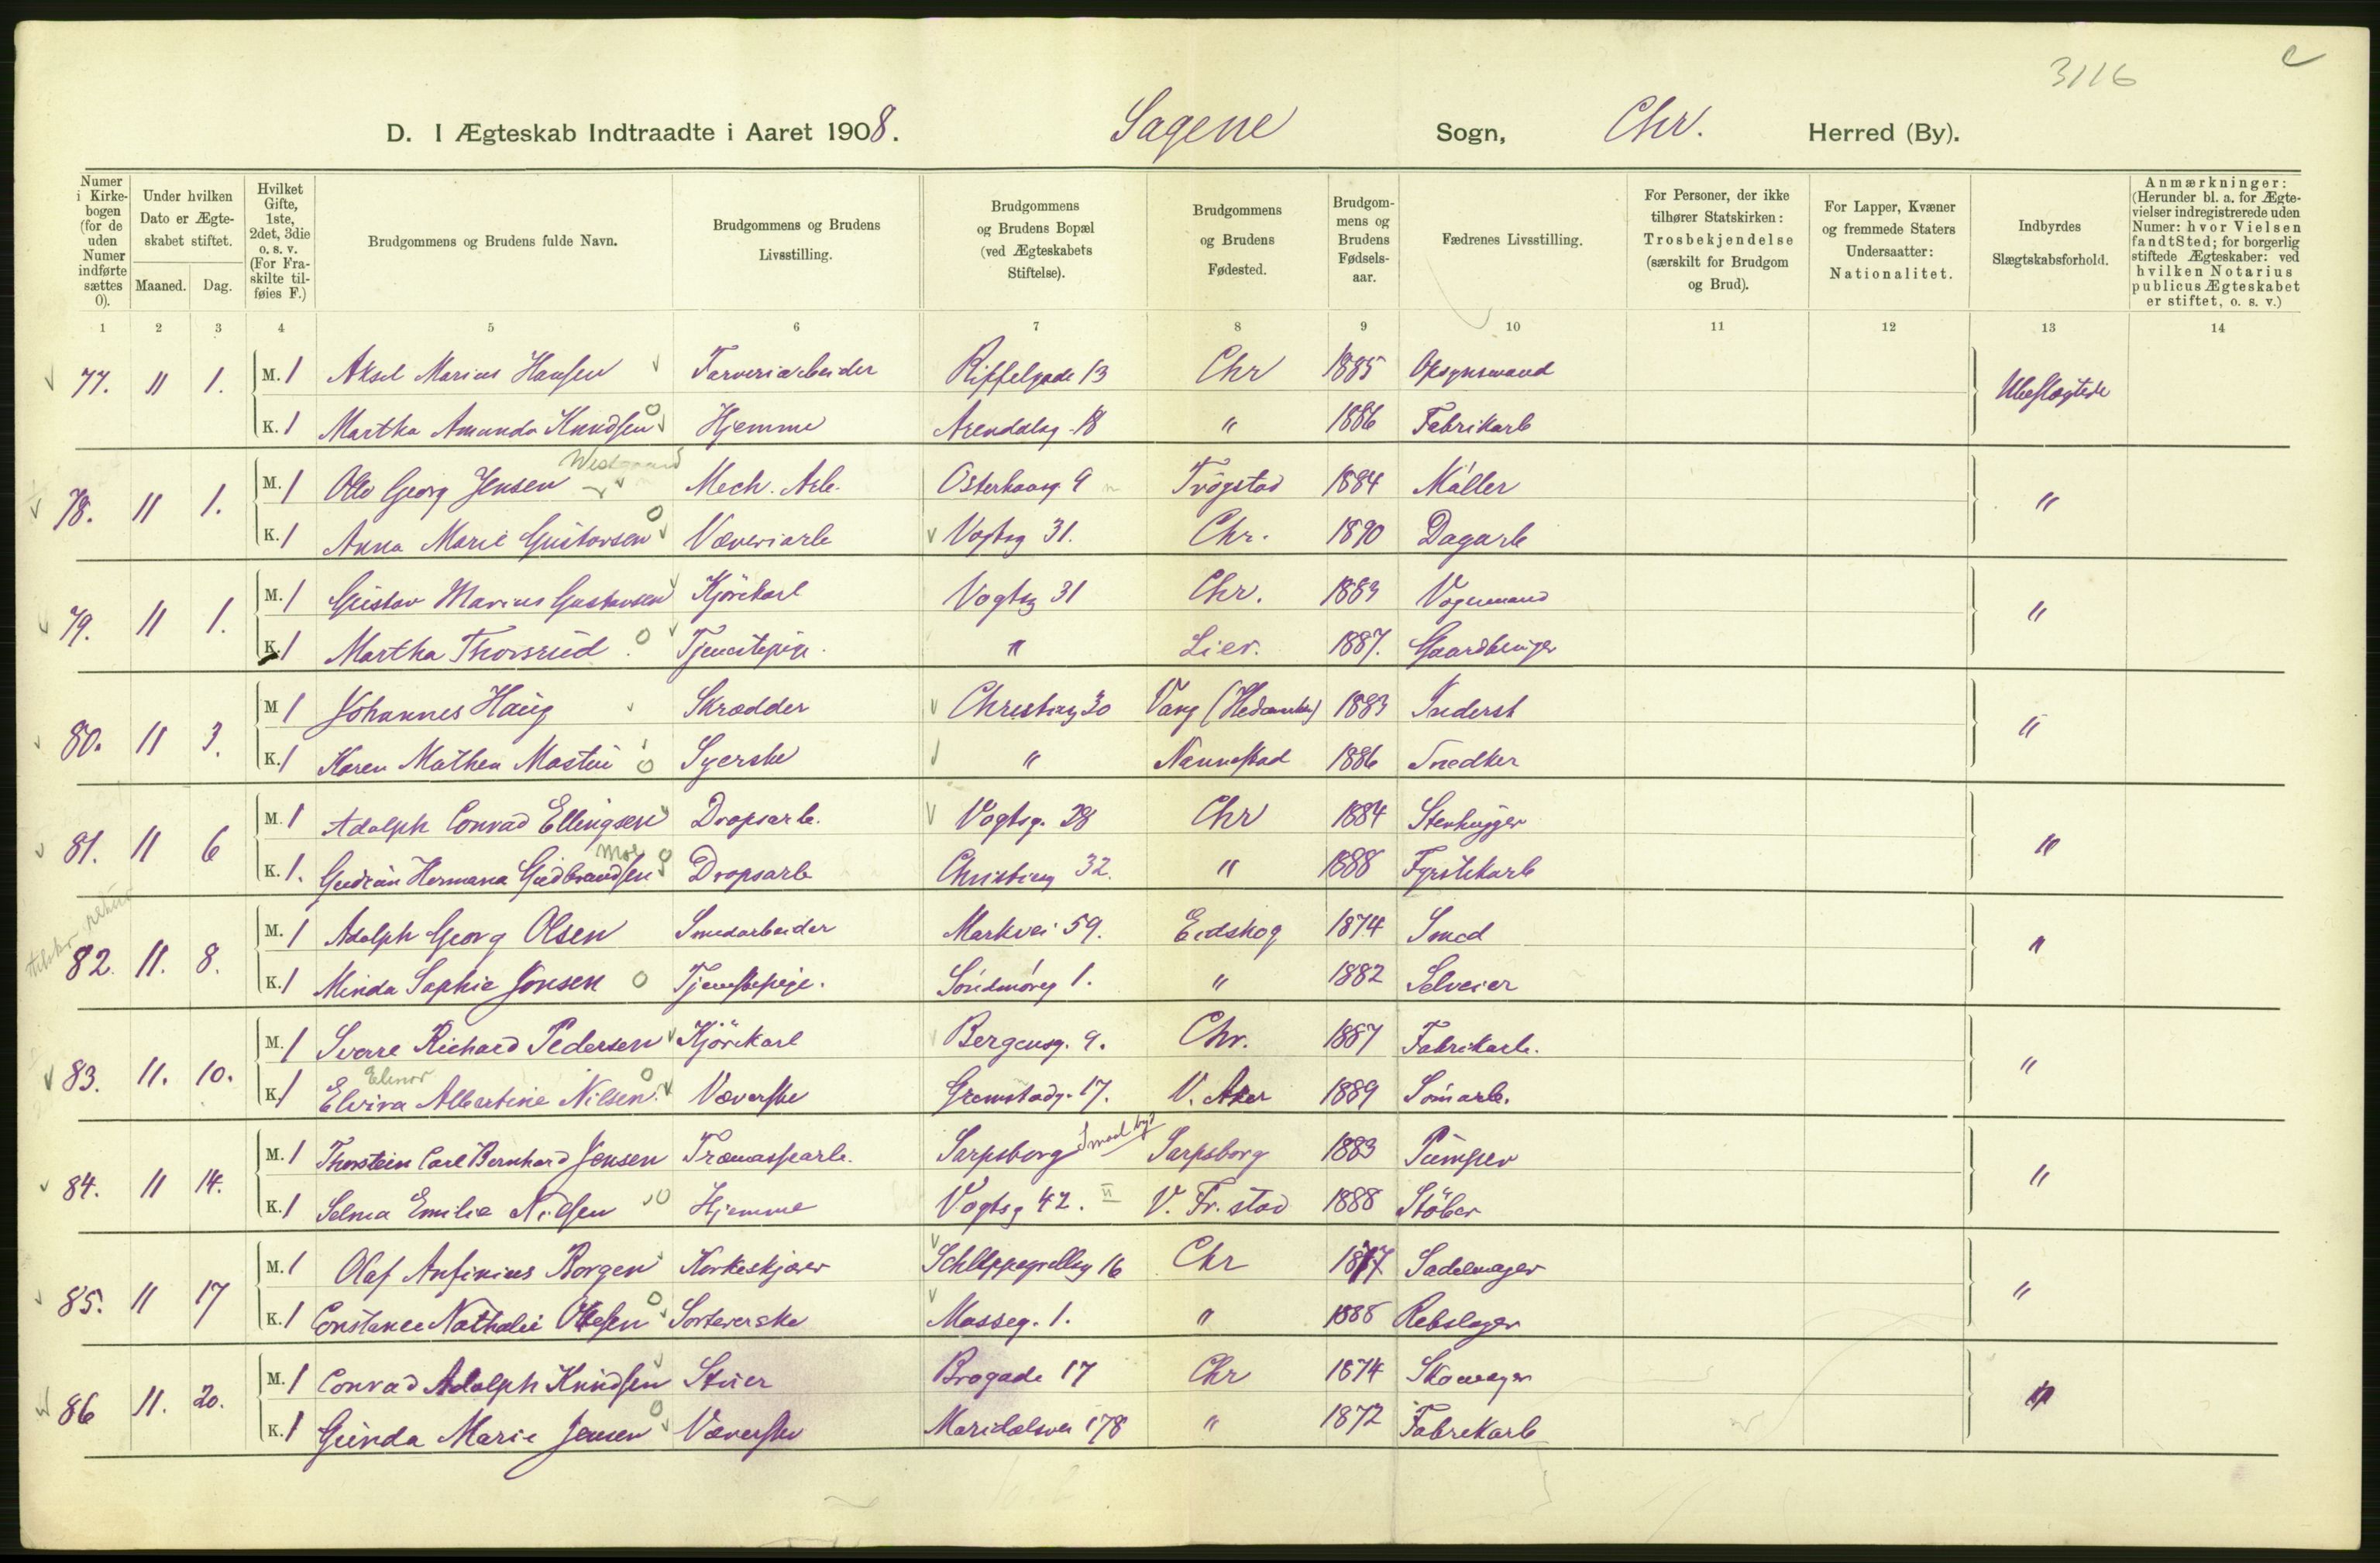 3116
D. I Ægteskab Indtraadte i Aaret 1908. Sagene Sogn, Chr. Herred (By).
Numer i Kirke-bogen (for de uden Numer indførte sættes 0).
Under hvilken Dato er Ægte-skabet stiftet.
Maaned. Dag.
Hvilket Gifte, 1ste, 2det, 3die o. s. v. (For Fra-skilte til-føies F.)
Brudgommens og Brudens fulde Navn.
Brudgommens og Brudens Livsstilling.
Brudgommens og Brudens Bopæl (ved Ægteskabets Stiftelse).
Brudgommens og Brudens Fødested.
Brudgom-mens og Brudens Fødsels-aar.
Fædrenes Livsstilling.
For Personer, der ikke tilhører Statskirken: Trosbekjendelse (særskilt for Brudgom og Brud).
For Lapper, Kvæner og fremmede Staters Undersaatter: Nationalitet.
Indbyrdes Slægtskabsforhold.
Anmærkninger: (Herunder bl. a. for Ægte-vielser indregistrerede uden Numer: hvor Vielsen fandt Sted; for borgerlig stiftede Ægteskaber: ved hvilken Notarius publicus Ægteskabet er stiftet, o. s. v.)
1 2 3 4 5 6 7 8 9 10 11 12 13 14
77. 11 1. M. 1 Aksel Marius Hansen Farveriarbeider Riffelgade 13 Chr 1885 Opsynsmand Ubeslægtede
K. 1 Martha Amanda Knudsen Hjemme Arendalsg 18 " 1886 Fabrikarb
Westgaard
78. 11 1. M. 1 Olav Georg Jensen Mech. Arb. Osterhausg 9 Trögstad 1884 Möller "
K. 1 Anna Marie Gustavsen Væveriarb Vogtsg 31. Chr. 1890 Dagarb
79. 11 1. M. 1 Gustav Marius Gustavsen Kjörekarl Vogtsg 31 Chr. 1883 Vognmand "
K. 1 Martha Thorsrud Tjenestepige. " Lier. 1887. Gaardbruger
80. 11 3. M 1 Johannes Haug Skrædder Christiesg 30 Vang (Hedemarken) 1883 Inderst "
K. 1 Karen Mathea Mastui Syerske " Nannestad 1886 Snedker
81. 11 6 M. 1 Adolph Conrad Ellingsen Dropsarb. Vogtsg. 28 Chr 1884 Stenhugger "
Moe
K. 1. Gudrun Hermana Gudbrandsen Dropsarb Christiesg 32. " 1888 Fyrstikarb
82. 11. 8. M. 1 Adolph Georg Olsen Smedarbeider Markvei 59. Eidskog 1874 Smed "
K. 1 Minda Sophie Jonsen Tjenestepige. Söndmörg 1. " 1882 Selveier
83. 11. 10. M. 1 Sverre Richard Pedersen Kjörekarl Bergensg. 9. Chr. 1887 Fabrikarb. "
Elinor
K. 1 Elvira Albertine Nilsen Væverske Gremstadg. 17. V. Aker 1889 Sömarb.
84. 11 14. M. 1 Thorstein Carl Bernhard Jensen Trævasfearb. Sarpsborg Sarpsborg 1883 Pumper "
K. 1 Selma Emilie Nilsen Hjemme Vogtsg 42. V. Fr. stad 1888 Stöber
85. 11 17 M. 1 Olaf Anfinius Borgen Korkeskjærer Schleppegrellsg 16 Chr 1877 Sadelmager "
K. 1 Constance Nathalie Olesen Sortererske Mosseg. 1. " 1888 Rebslager
86 11. 20. M. 1 Conrad Adolph Knudsen Stuer Brogade 17 Chr 1874 Skomager "
K. 1 Gunda Marie Jensen Væverske Maridalsvei 178 " 1872 Fabrikarb